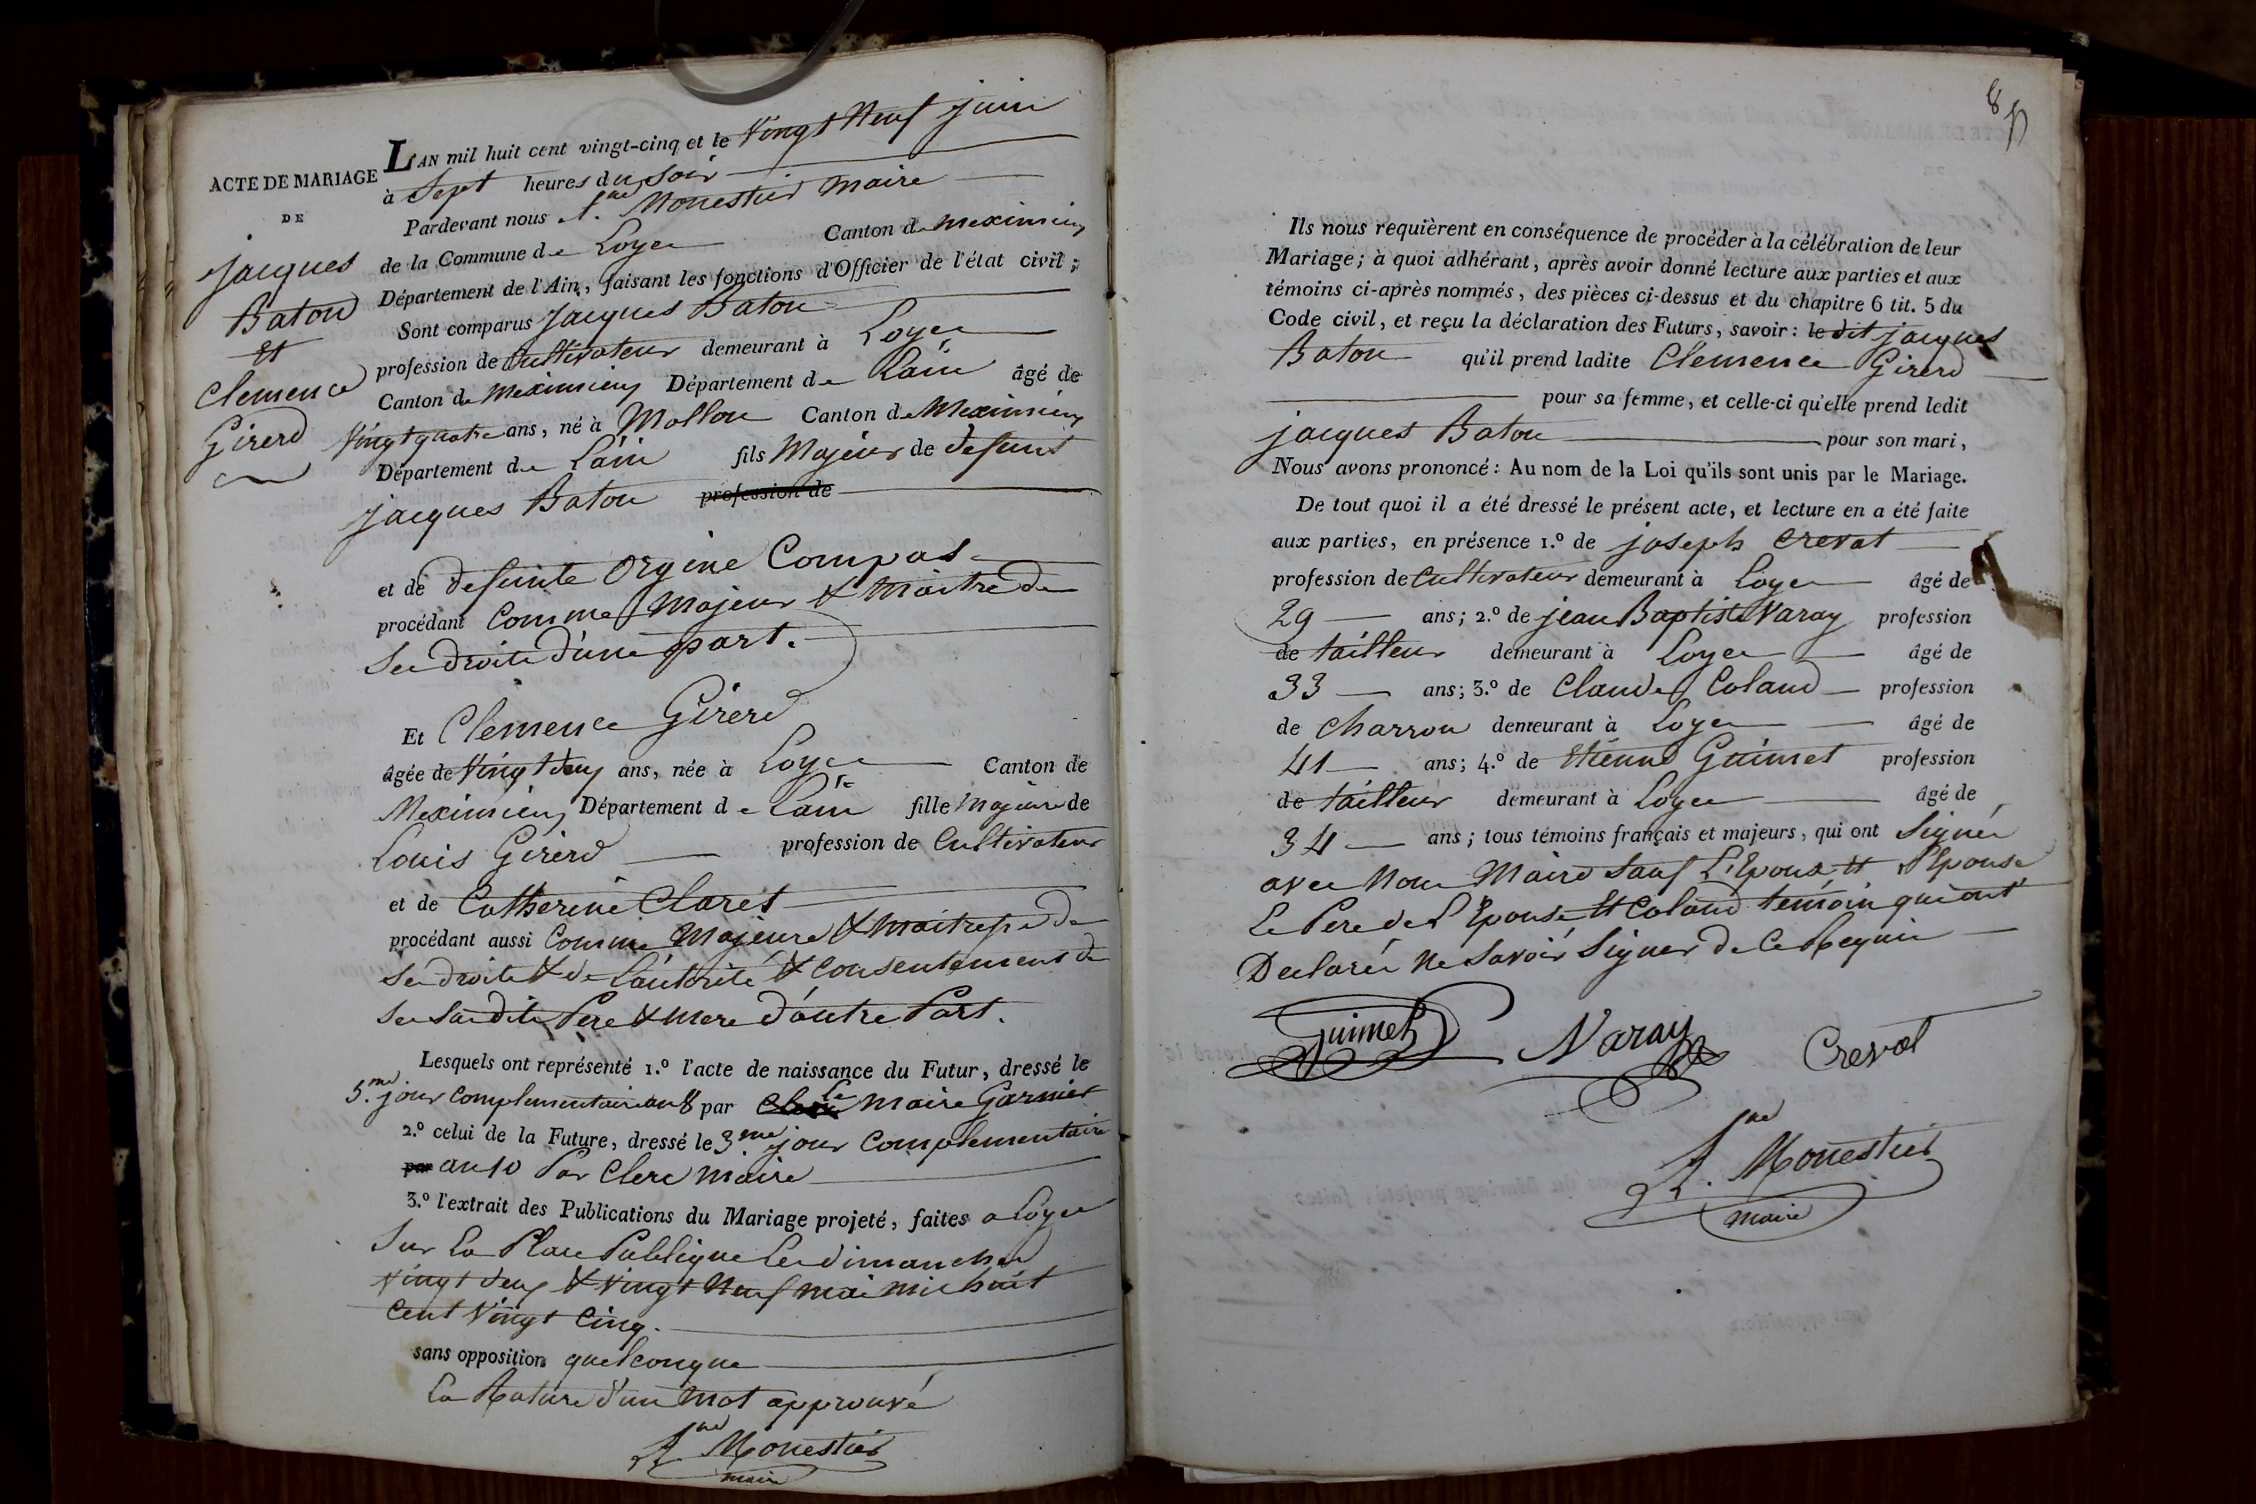 ACTE DE MARIAGE
DE
jacques
Baton
Et
Clemence
Girerd
L'AN mil huit cent vingt-cinq et le Vingt Neuf juin
à Sept heures du Soir
Pardevant nous A.ne Monestier Maire
de la Commune de Loyes Canton de Meximieux
Département de l'Ain, faisant les fonctions d'Officier de l'état civil;
Sont comparus jacques Baton
profession de Cultivateur demeurant à Loyes
Canton de Meximieux Département de Lain âgé de
Vingt quatre ans, né à Mollon Canton de Meximieux
Département de Lain fils Majeur de defunt
jacques Baton profession de
et de defunte Orgine Compas
procédant Comme Majeur & Maitre de
Ses droits d'une part.
Et Clemence Girerd
âgée de Vingt deux ans, née à Loyes Canton de
Meximieux Département de Lain fille Majeure de
Louis Girerd profession de Cultivateur
et de Catherine Claret
procédant aussi Comme Majeure & maitresse de
Ses droits & de L'autorité & consentement de
Ses Sus dits Pere & mere d'autre Part.
Lesquels ont représenté 1.º l'acte de naissance du Futur, dressé le
5.me jour complementaire an 8 par Le Maire Garnier
2.º celui de la Future, dressé le 3.me jour Complementaire
par an 10 Par Clerc Maire
3.º l'extrait des Publications du Mariage projeté, faites a Loyes
Sur La Place Publique Les dimanches
vingt deux & vingt Neuf mai mil huit
cent Vingt Cinq.
sans opposition quelconque
La Rature d'un mot approuvé
A.ne Monestier
maire
85
Ils nous requièrent en conséquence de procéder à la célébration de leur
Mariage; à quoi adhérant, après avoir donné lecture aux parties et aux
témoins ci-après nommés, des pièces ci-dessus et du chapitre 6 tit. 5 du
Code civil, et reçu la déclaration des Futurs, savoir: le dit jacques
Baton qu'il prend ladite Clémence Girerd
pour sa femme, et celle-ci qu'elle prend ledit
jacques Baton pour son mari,
Nous avons prononcé: Au nom de la Loi qu'ils sont unis par le Mariage.
De tout quoi il a été dressé le présent acte, et lecture en a été faite
aux parties, en présence 1.º de joseph Crevat
profession de Cultivateur demeurant à Loyes âgé de
29 ans; 2.º de jean Baptiste Varay profession
de tailleur demeurant à Loyes âgé de
33 ans; 3.º de Claude Coland profession
de Charron demeurant à Loyes âgé de
41 ans; 4.º de Etienne Guimet profession
de tailleur demeurant à Loyes âgé de
34 ans; tous témoins français et majeurs, qui ont Signés
avec Nous Maire Sauf L'Epoux Et L'Epouse
Le Pere de L'Epouse Et Coland temoin qui ont
Declarés Ne Savoir Signer de Ce Requis
Guimet Varay Crevat
A.ne Monestier
maire